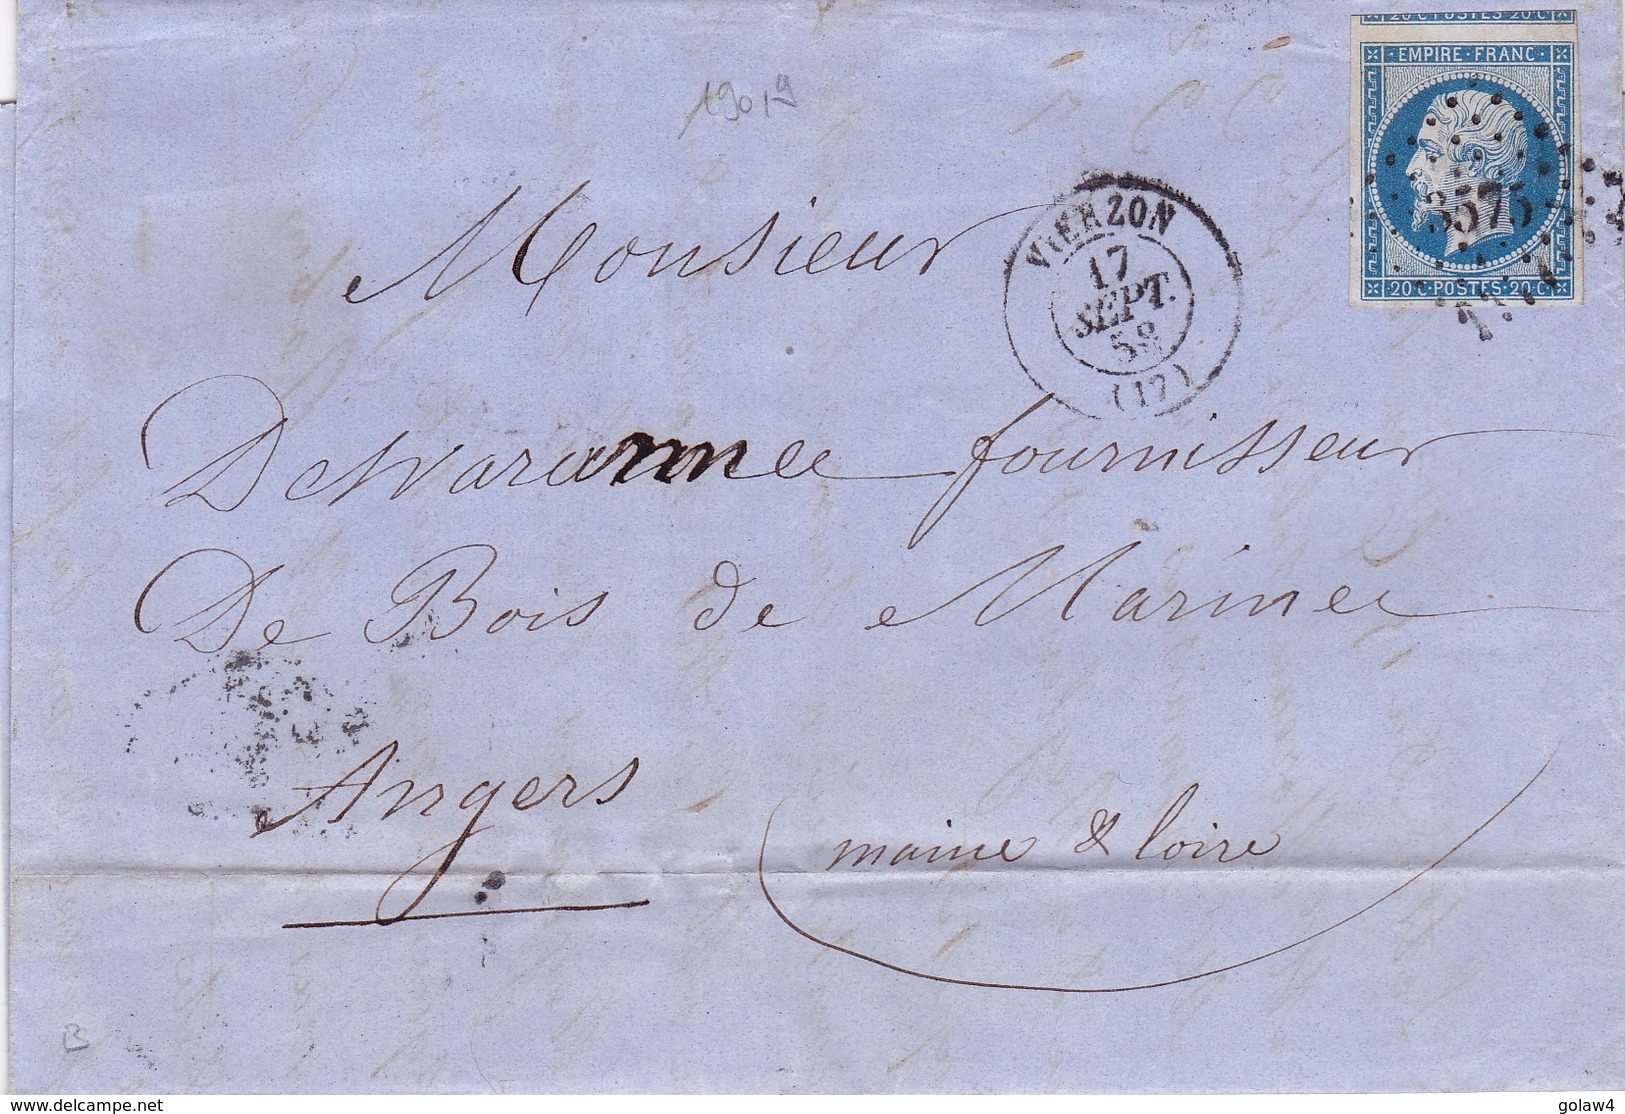 20 C·POSTES·20·C
EMPIRE·FRANC·
3575
20·C·POSTES·20·C·
19019
VIERZON
17
SEPT.
58
(17)
Monsieur
fournisseur
De Bois de Marine
Angers
(maine & loire
B
www.delcampe.net
golaw4